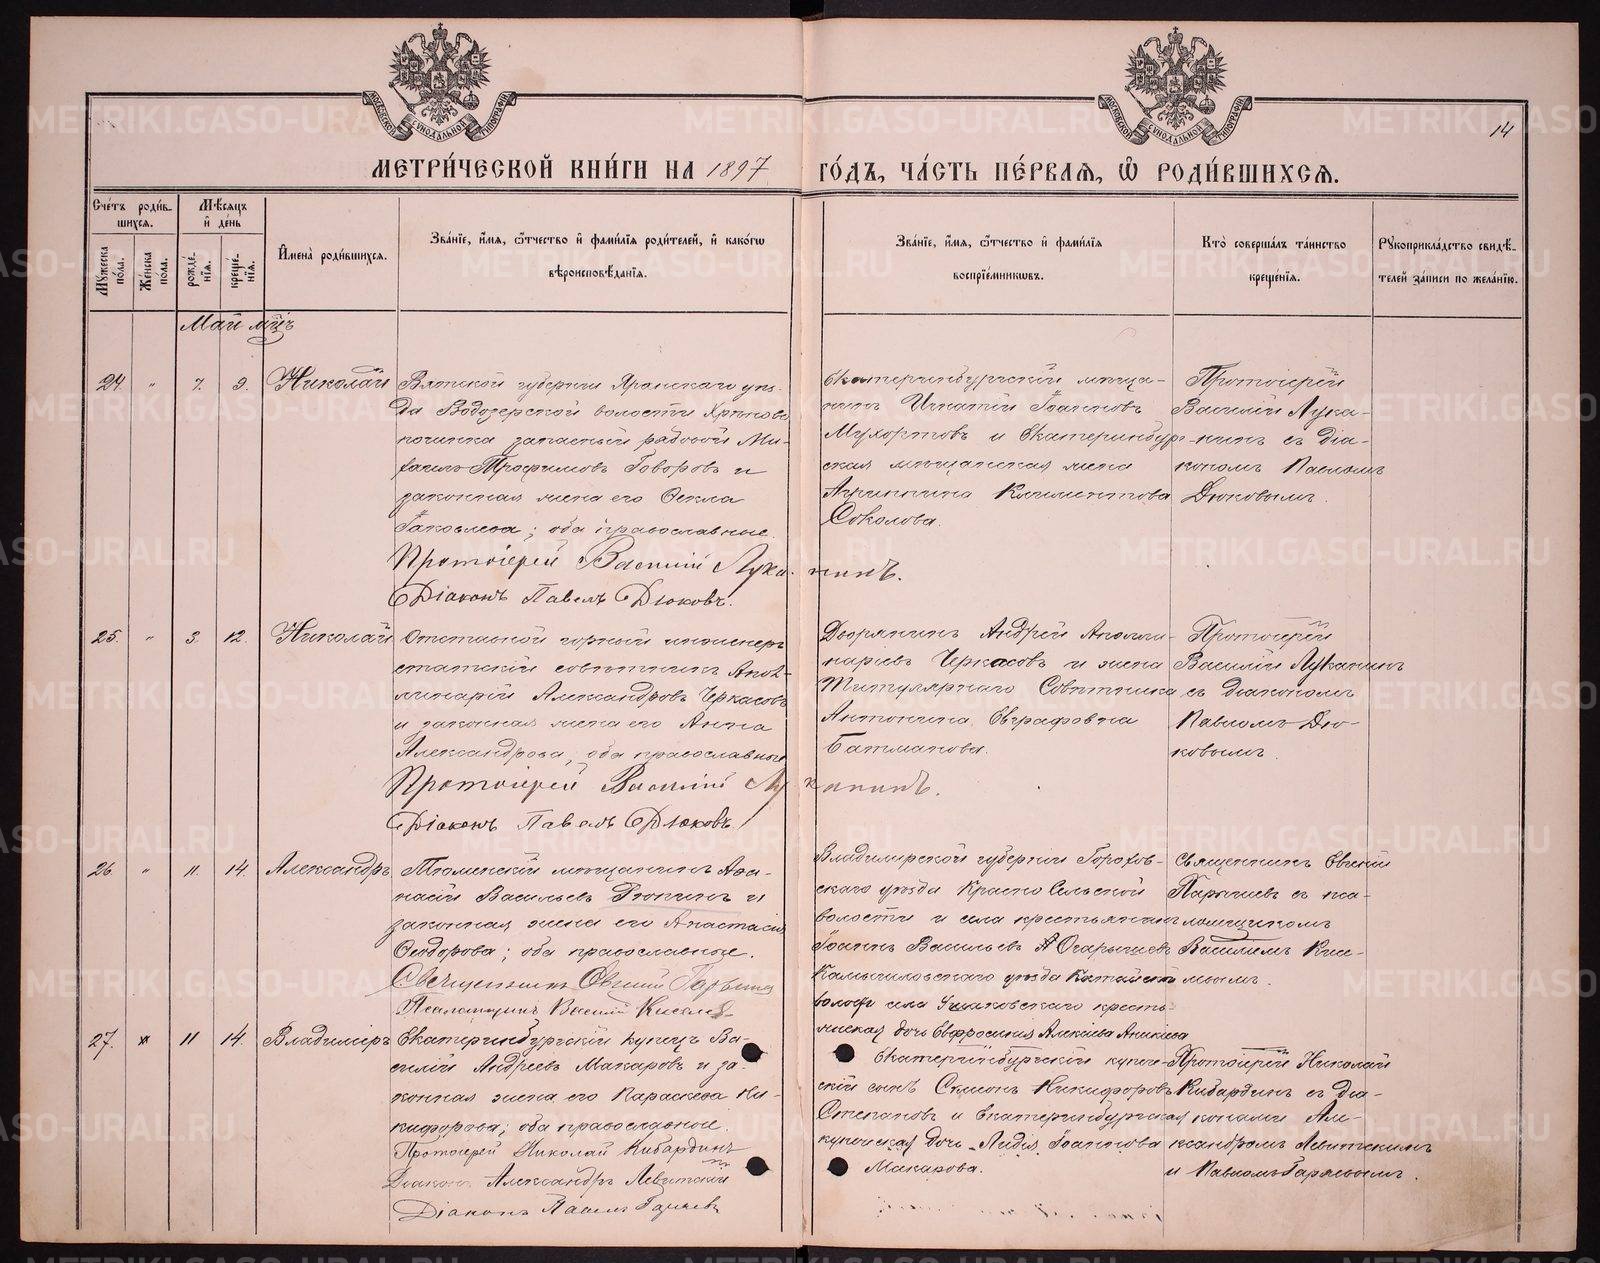 14
МЕТРИ́ЧЕСКОЙ КНИ́ГИ НА 1897 ГО́ДЪ, ЧА́СТЬ ПЕ́РВАЯ, Ѡ҆ РОДИ́ВШИХСЯ.
Сче́тъ роди́в-
шихся.
Мѣ́сяцъ
и҆ де́нь
Мꙋ́жеска по́ла.
Же́нска по́ла.
рожде́нїя.
креще́нїя.
И҆мена̀ роди́вшихся.
Зва́нїе, и҆́мя, ѻ҆́тчество и҆ фами́лїя роди́телей, и҆ како́гѡ
вѣроисповѣ́данїя.
Зва́нїе, и҆́мя, ѻ҆́тчество и҆ фами́лїя
воспрїе́мникѡвъ.
Кто̀ соверша́лъ та́инство
креще́нїя.
Рꙋкоприкла́дство свидѣ́-
телей за́писи по жела́нїю.
Май мцъ
24 " 7. 9. Николай
Вятской губерніи Яранскаго уѣз-
да Водозерской волости Хрѣнова
починка запасный рядовой Ми-
хаилъ Трофимовъ Говоровъ и
законная жена его Ѳекла
Іаковлева; оба православные.
Протоіерей Василій Лука-нинъ.
Діаконъ Павелъ Дюковъ.
Екатеринбургскій мѣща-
нинъ Игнатій Іоанновъ
Мухортовъ и Екатеринбург-
ская мѣщанская жена
Агриппина Климентова
Соколова.
Протоіерей
Василій Лука-
нинъ съ діа-
кономъ Павломъ
Дюковымъ.
25. " 3. 12. Николай
Отставной горный инженеръ
статскій совѣтникъ Апол-
линарій Александровъ Черкасовъ
и законная жена его Анна
Александрова, оба православные
Протоіерей Василій Луканинъ.
Діаконъ Павелъ Дюковъ.
Дворянинъ Андрей Аполли-
наріевъ Черкасовъ и жена
Титулярнаго Совѣтника
Антонина Евграфовна
Батманова.
Протоіерей
Василій Луканинъ
съ діакономъ
Павломъ Дю-
ковымъ.
26. " 11. 14. Александръ
Тюменскій мѣщанинъ Аѳа-
насій Васильевъ и
законная жена его Анастасія
Ѳеодорова; оба православные.
Священникъ Евгеній
Псаломщикъ Василій
Владимірской губерніи Горохов-
скаго уѣзда Красно Сельской
волости и села крестьянинъ
Іоаннъ Васильевъ Огарышевъ
Камышловскаго уѣзда
волости села Ушаковскаго кресть-
янская дочь Евфросинія Алексіева Аникіева
Священникъ Евгеній
съ пса-
ломщикомъ
Василіемъ Кисе-
левымъ.
27. " 11 14. Владиміръ
Екатеринбургскій купецъ Ва-
силій Андреевъ Макаровъ и за-
конная жена его Параскева Ни-
кифорова; оба православные.
Протоіерей Николай Кибардинъ
Діаконъ Александръ Левитскій
Діаконъ Павелъ Гаряевъ
Екатеринбургскій купече-
скій сынъ Симеонъ Никифоровъ
Степановъ и Екатеринбургская
купеческая дочь Лидія Іоаннова
Макарова.
Протоіерей Николай
Кибардинъ съ діа-
конами Але-
ксандромъ Левитскимъ
и Павломъ Гаряевымъ.
METRIKI.GASO-URAL.RU